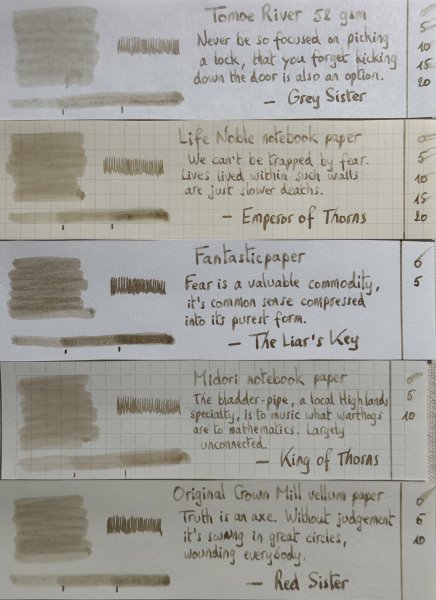 Tomoe River 52 gsm
Never be so focused on picking
a lock, that you forget kicking
down the door is also an option.
— Grey Sister
0
5
10
15
20
Life Noble notebook paper
We can't be trapped by fear.
Lives lived within such walls
are just slower deaths.
— Emperor of Thorns
0
5
10
15
20
Fantasticpaper
Fear is a valuable commodity,
it's common sense compressed
into its purest form.
— The Liar's Key
0
5
Midori notebook paper
The bladder-pipe, a local Highlands
specialty, is to music what warthogs
are to mathematics. Largely
unconnected.
— King of Thorns
0
5
10
Original Crown Mill vellum paper
Truth is an axe. Without judgement
it's swung in great circles,
wounding everybody.
— Red Sister
0
5
10